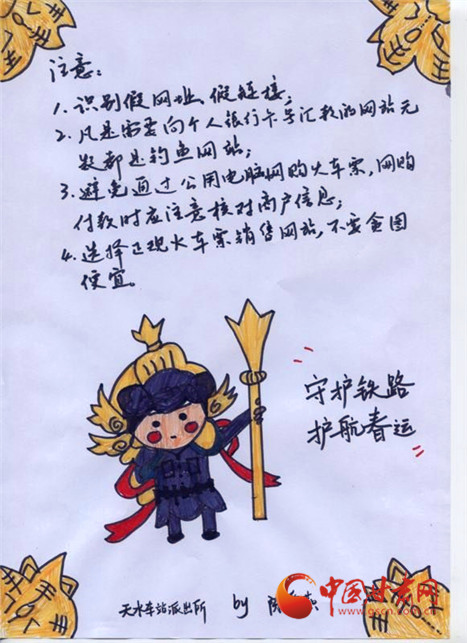 注意:
1. 识别假网址、假链接;
2. 凡是需要向个人银行卡号汇款的网站元
疑都是钓鱼网站;
3. 避免通过公用电脑网购火车票,网购
付款时应注意核对商户信息;
4. 选择正规火车票销售网站,不要贪图
便宜。
守护铁路
护航春运
天水车站派出所 by 陈
中国甘肃网
www.gscn.com.cn